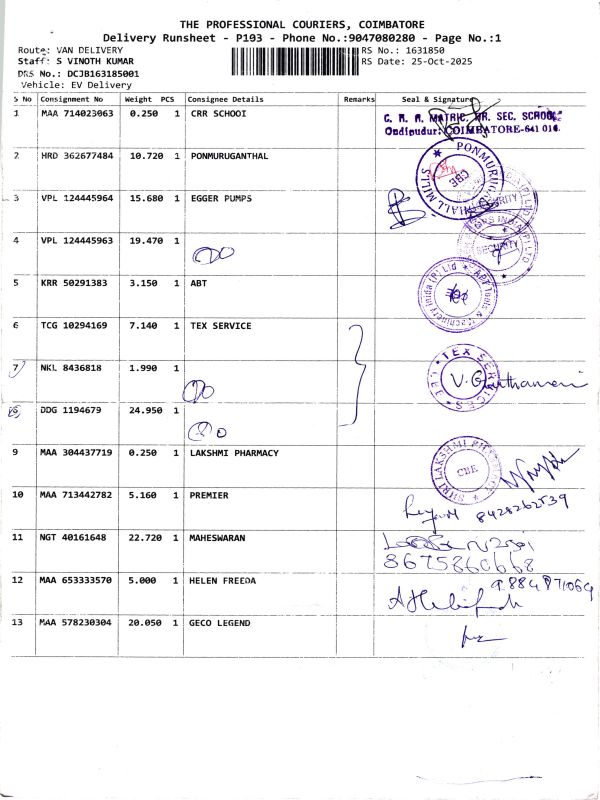 THE PROFESSIONAL COURIERS, COIMBATORE
Delivery Runsheet - P193 - Phone No.:9047080280 - Page No.:1
Route: VAN DELIVERY RS No.: 1631850
Staff: S VINOTH KUMAR RS Date: 25-Oct-2025
DRS No.: DCJB163185001
Vehicle: EV Delivery
S No Consignment No Weight PCS Consignee Details Remarks Seal & Signature
1 MAA 714023063 0.250 1 CRR SCHOOl
C. R. R. MATRIC. HR. SEC. SCHOOL
COIMBATORE-641 014.
2 HRD 362677484 10.720 1 PONMURUGANTHAL
CBE
3 VPL 124445964 15.680 1 EGGER PUMPS
SECURITY
4 VPL 124445963 19.470 1
SECURITY
5 KRR 50291383 3.150 1 ABT
6 TCG 10294169 7.140 1 TEX SERVICE
7 NKL 8436818 1.990 1
TEX SERVICES
8 DDG 1194679 24.950 1
9 MAA 304437719 0.250 1 LAKSHMI PHARMACY
SHRI LAKSHMI PHARMACY
CBE
10 MAA 713442782 5.160 1 PREMIER
8428262539
11 NGT 40161648 22.720 1 MAHESWARAN
8675860668
12 MAA 653333570 5.000 1 HELEN FREEDA
9884871069
13 MAA 578230304 20.050 1 GECO LEGEND